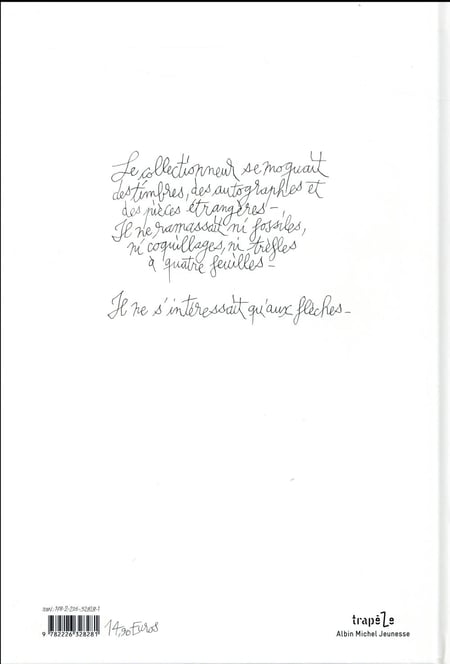 Le collectionneur se moquait
des timbres, des autographes et
des pièces étrangères_
Il ne ramassait ni fossiles,
ni coquillages, ni trèfles
à quatre feuilles_
Il ne s'intéressait qu'aux flèches_
ISBN: 978-2-226-32828-1
9 782226 328281
14,90 Euros
trapèze
Albin Michel Jeunesse